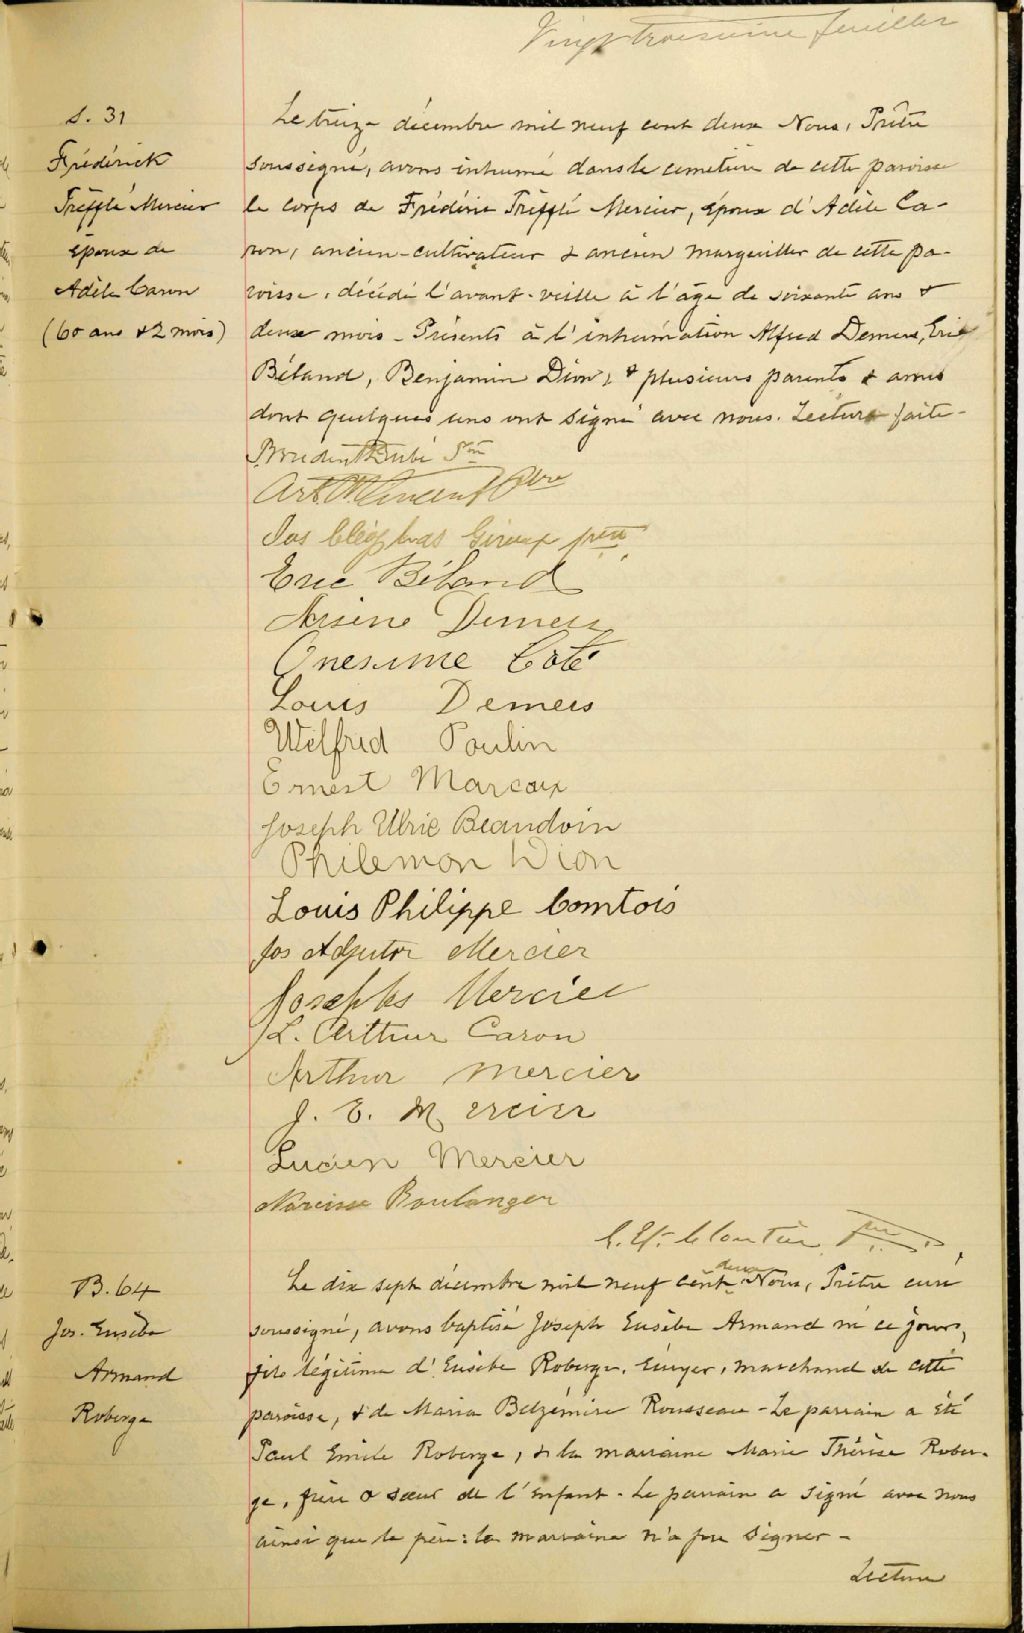 Vingt troisième feuillet
S. 31
Frédérick
Trefflé Mercier
époux de
Adèle Caron
(60 ans & 2 mois)
Le treize décembre mil neuf cent deux Nous, Prêtre
soussigné, avons inhumé dans le cemetière de cette paroisse
le corps de Frédéric Trefflé Mercier, époux d'Adèle Ca-
ron, ancien-cultivateur & ancien marguiller de cette pa-
roisse, décédé l'avant-veille à l'âge de soixante ans &
deux mois - Présents à l'inhumation Alfred Demers, Eric
Béland, Benjamin Dion, & plusieurs parents & amis
dont quelques uns ont signé avec nous. Lecture faite -
Prudent Dubé
Art. Vincent Ptre
Jos Cléophas Giroux ptre
Eric Béland
Arsène Demers
Onesime Coté
Louis Demers
Wilfrid Poulin
Ernest Marcoux
Joseph Ulric Beaudoin
Philemon Dion
Louis Philippe Comtois
Jos Adjutor Mercier
Josephs Mercier
L. Arthur Caron
Arthur Mercier
J. E. Mercier
Lucien Mercier
Narcisse Boulanger
Cloutier Ptre
B. 64
Jos. Eusèbe
Armand
Roberge
Le dix sept décembre mil neuf cent deux Nous, Prêtre curé
soussigné, avons baptisé Joseph Eusèbe Armand né ce jour,
fils légitime d'Eusèbe Roberge, Ecuyer, marchand de cette
paroisse, & de Maria Belzémire Rousseau - Le parrain a été
Paul Emile Roberge, & la marraine Marie Thérèse Rober-
ge, frère & sœur de l'enfant - Le parrain a signé avec nous
ainsi que le père: la marraine n'a pu signer -
Lecture